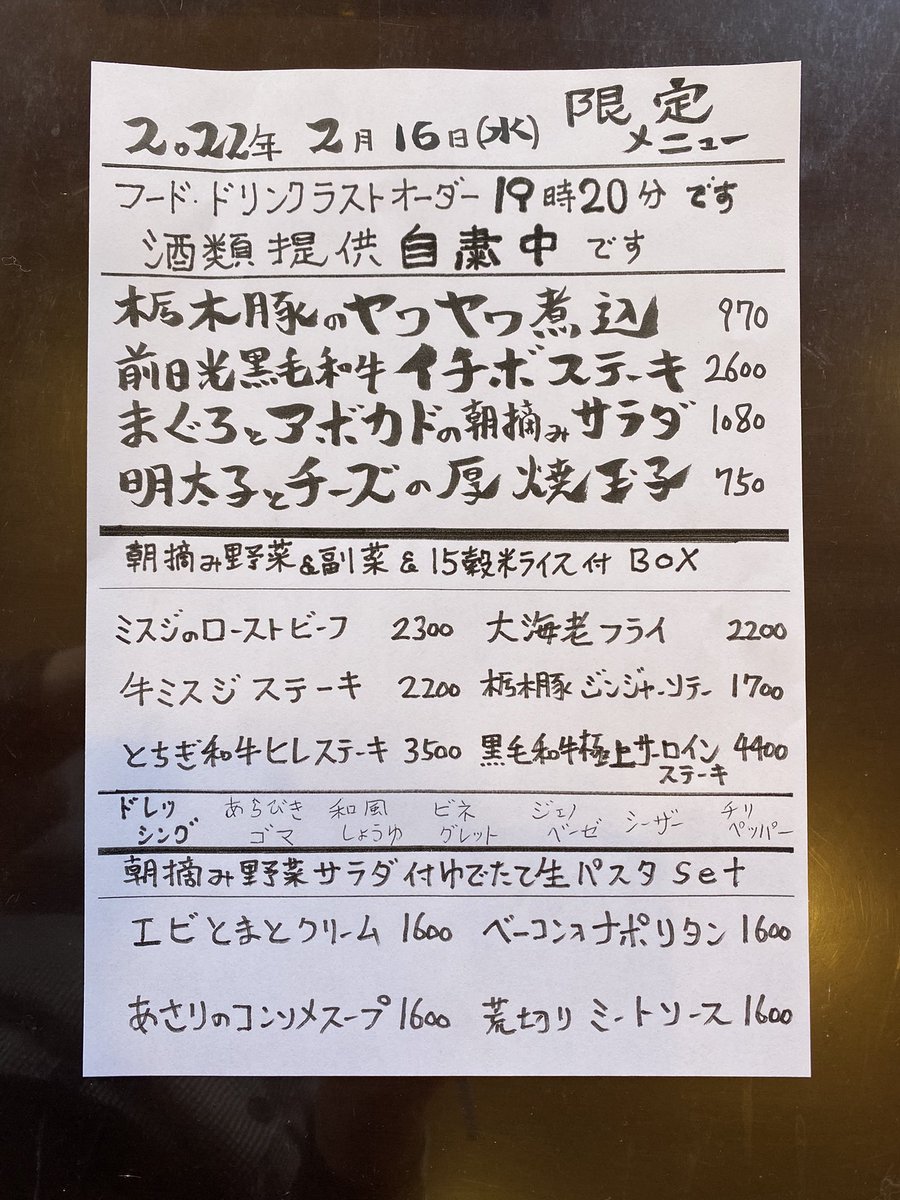 2022年 2月 16日(水) 限定メニュー
フード・ドリンクラストオーダー 19時20分 です
酒類提供 自粛中 です
栃木豚のヤワヤワ煮込 970
前日光黒毛和牛イチボステーキ 2600
まぐろとアボカドの朝摘みサラダ 1080
明太子とチーズの厚焼玉子 750
朝摘み野菜&副菜&15穀米ライス付 BOX
ミスジのローストビーフ 2300 大海老フライ 2200
牛ミスジステーキ 2200 栃木豚ジンジャーソテー 1700
とちぎ和牛ヒレステーキ 3500 黒毛和牛極上サーロインステーキ 4400
ドレッシング あらびきゴマ 和風しょうゆ ビネグレット ジェノベーゼ シーザー チリペッパー
朝摘み野菜サラダ付ゆでたて生パスタ set
エビとまとクリーム 1600 ベーコンオナポリタン 1600
あさりのコンソメスープ 1600 荒切りミートソース 1600